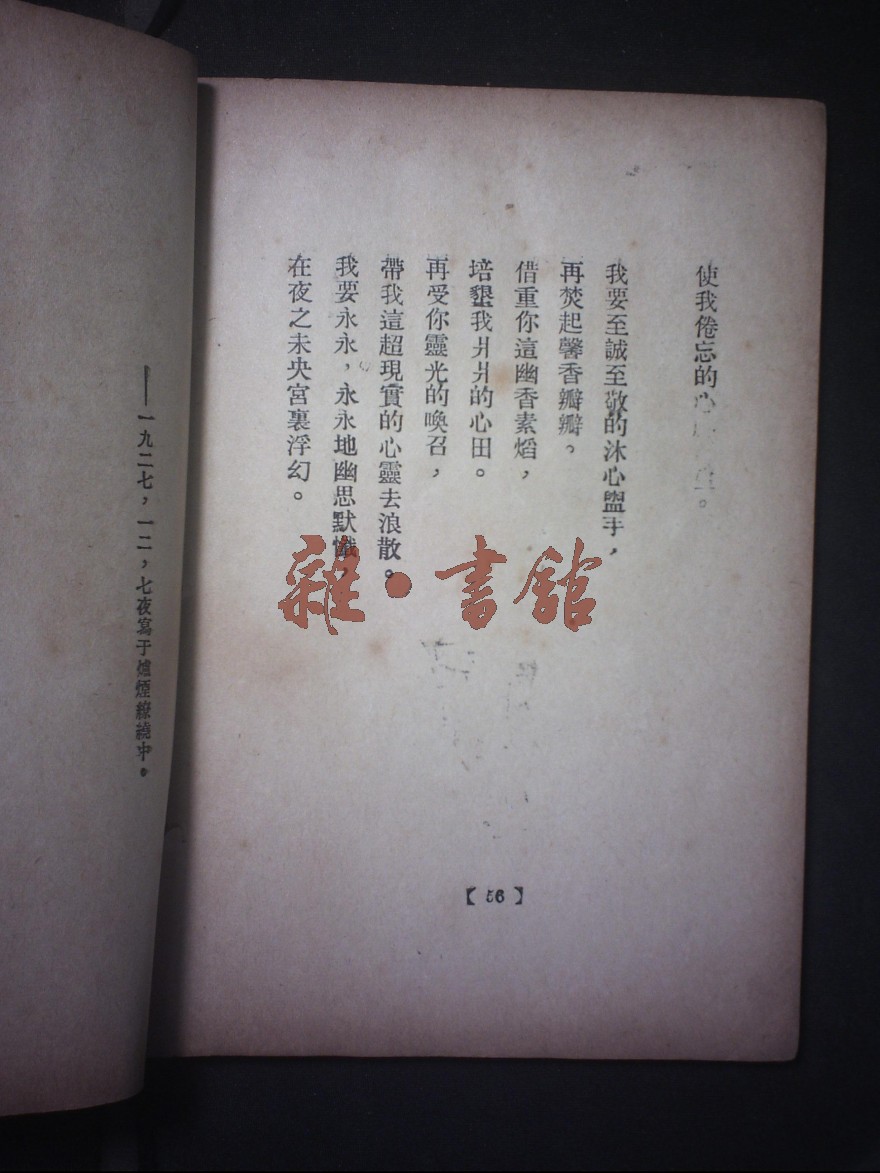 使我倦忘的心
我要至誠至敬的沐心盥手，
再焚起馨香瓣瓣。
借重你這幽香素熖，
培墾我爿爿的心田。
再受你靈光的喚召，
帶我這超現實的心靈去浪散。
我要永永，永永地幽思默懺，
在夜之未央宮裏浮幻。
【56】
——一九二七，一二，七夜寫于爐煙繚繞中。
雜·書館